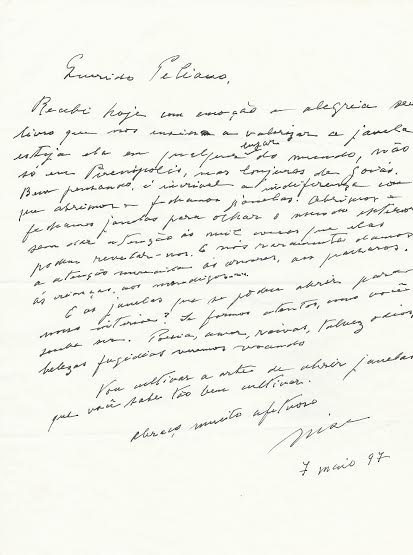 Querido Peliano,
Recebi hoje com emoção e alegria seu
livro que nos ensina a valorizar a janela
esteja ela em qualquer lugar do mundo, não
só em Pirenópolis, nas lonjuras de Goiás.
Bem pensando, é incrível a indiferença com
que abrimos e fechamos janelas! Abrimos e
fechamos janelas para olhar o mundo exterior
sem dar atenção às mil coisas que elas
podem revelar-nos. E nós raramente damos
a atenção merecida às árvores, aos pássaros,
às crianças, aos mendigos...
E as janelas que se podem abrir para
nosso interior? Se formos atentos, como você
soube ser. Poesia, amor, raivas, talvez ódios,
belezas fugidias veremos voando
Vou cultivar a arte de abrir janelas
que você sabe tão bem cultivar.
Abraço, muito afetuoso
7 maio 97